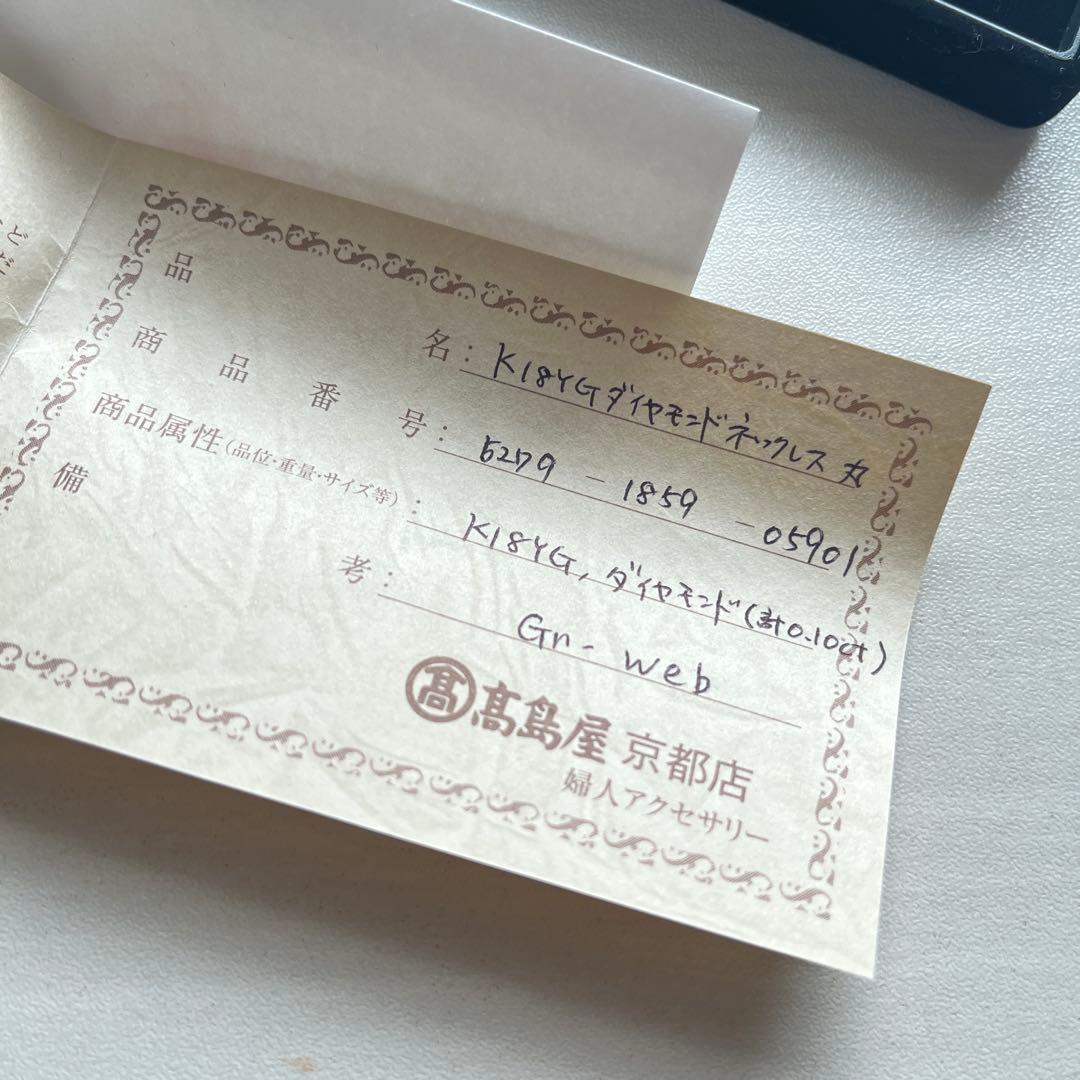 ど
だ
品名：K18YGダイヤモンドネックレス 丸
商品番号：5279-1859-05901
商品属性(品位・重量・サイズ等)：K18YG, ダイヤモンド(計0.10ct)
備考：Gr-web
髙 髙島屋 京都店
婦人アクセサリー